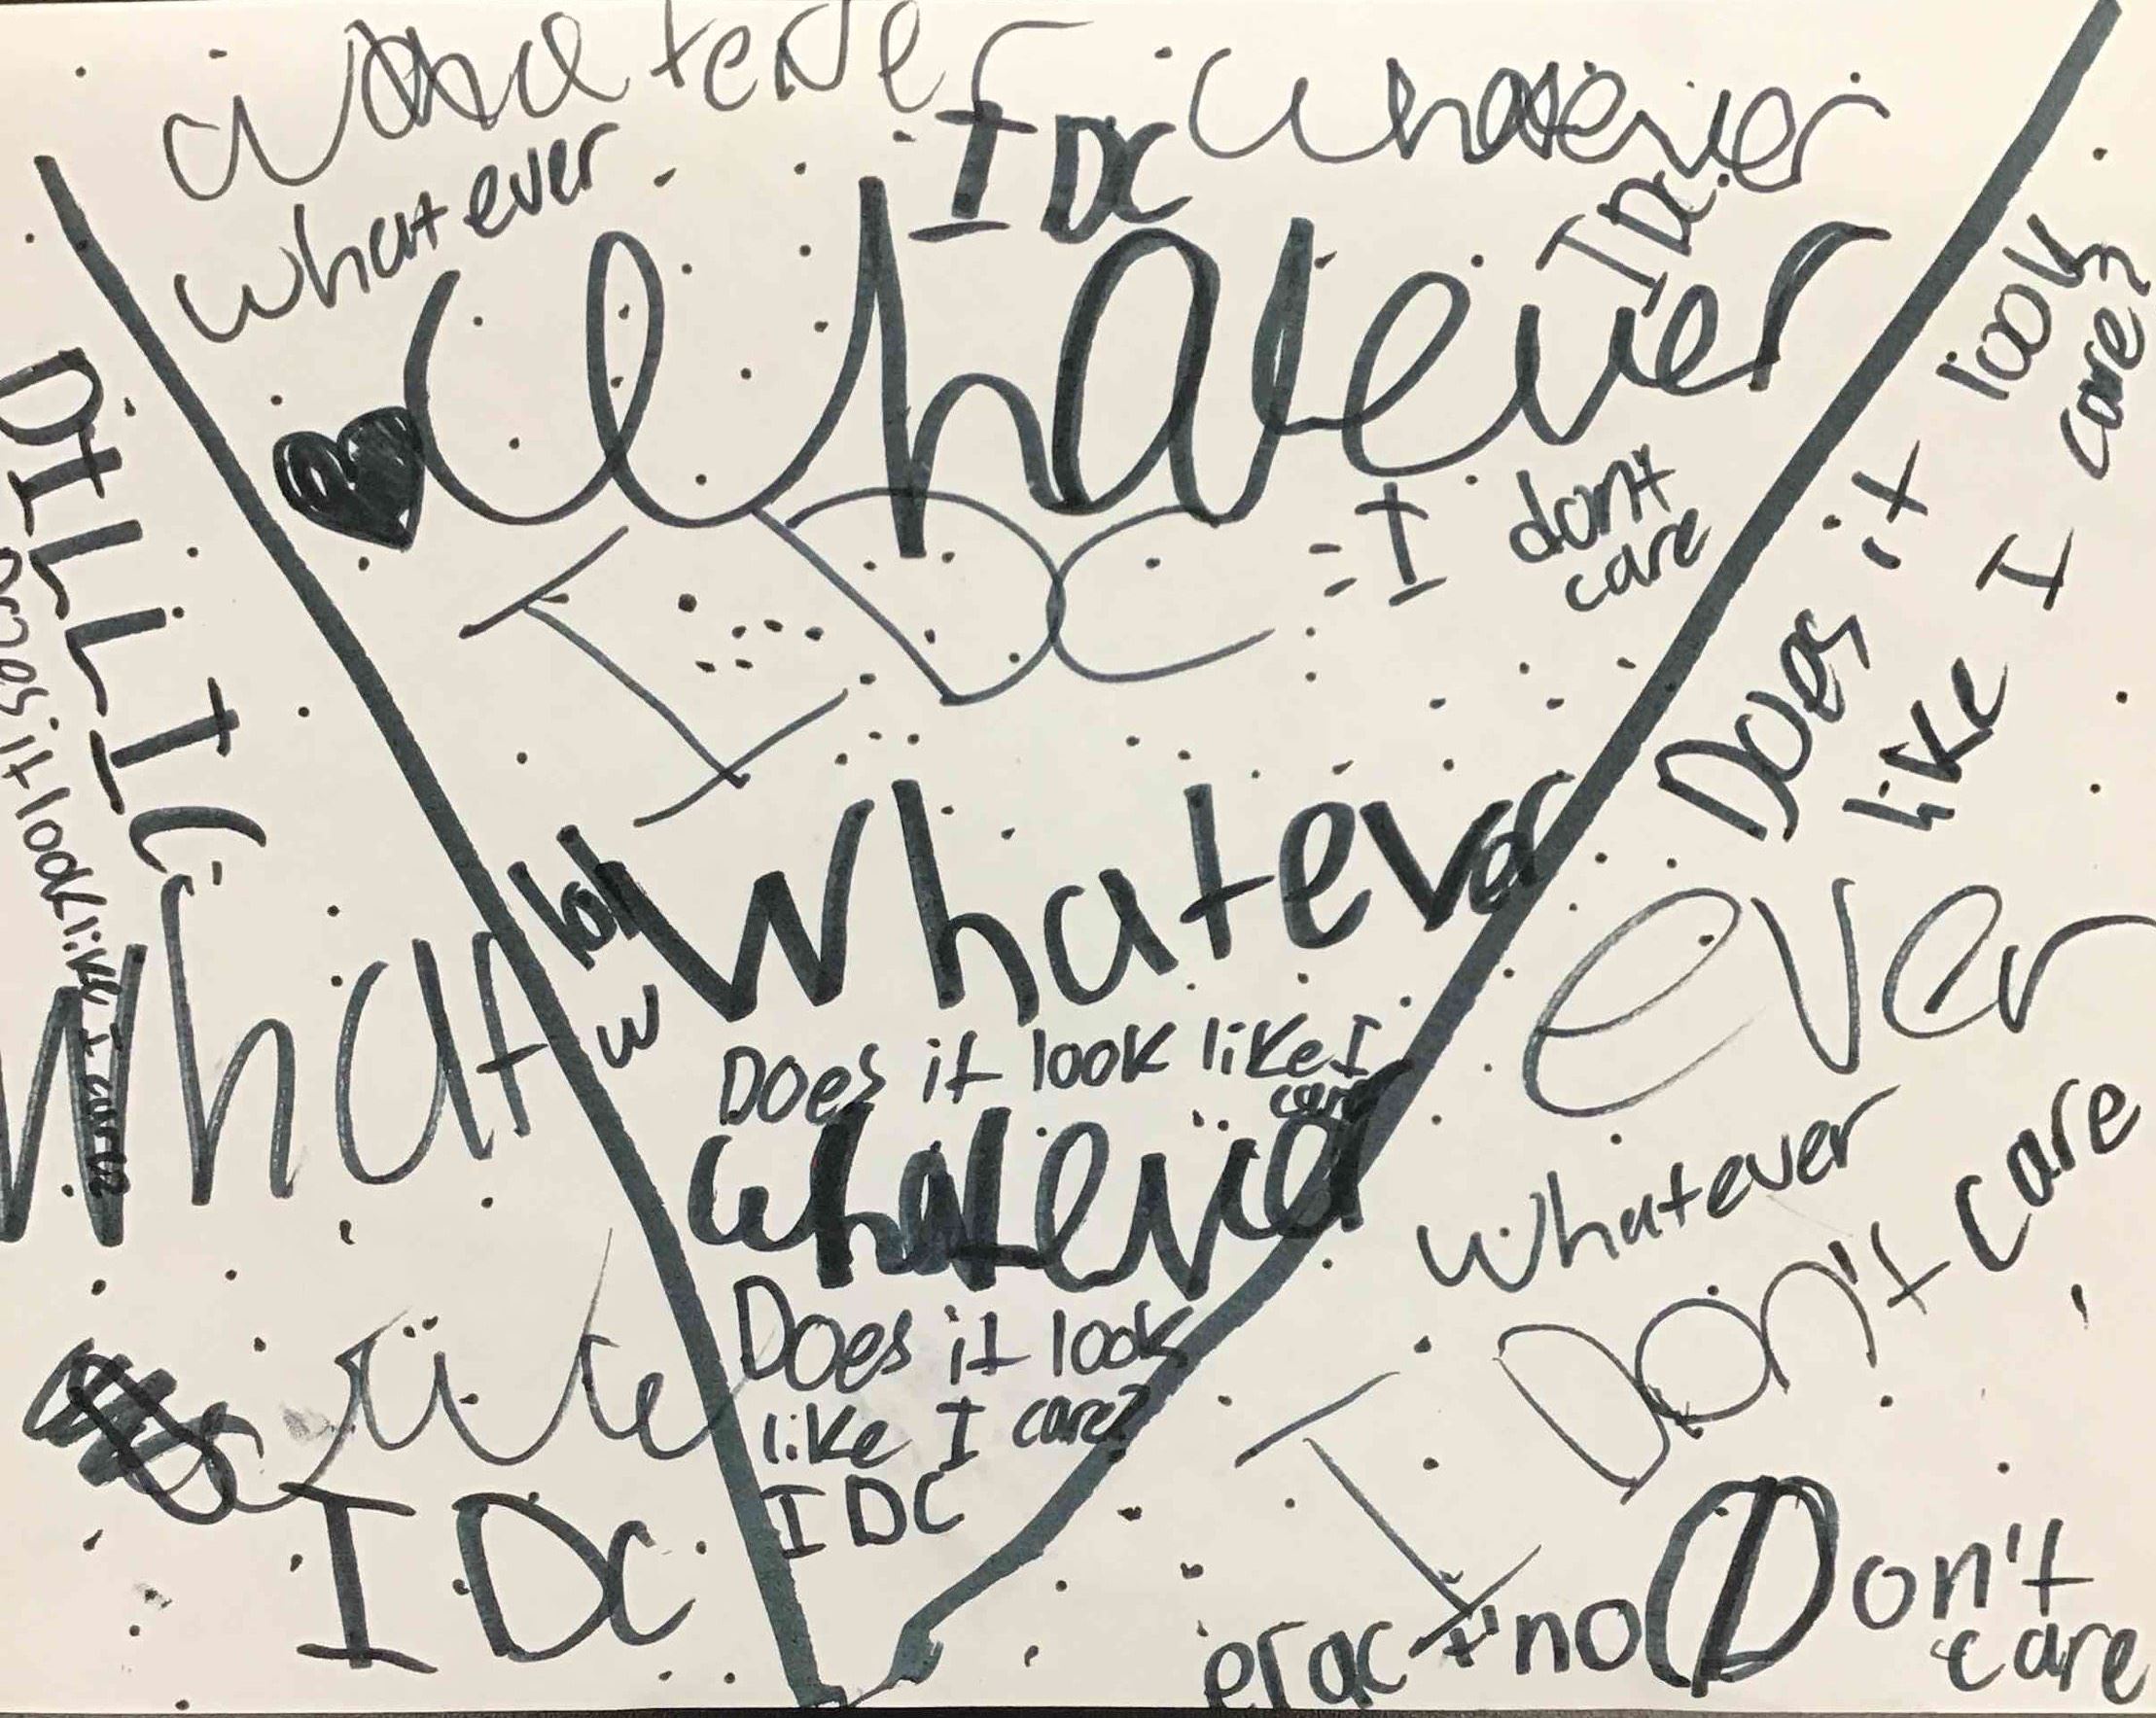 whatever
whatever
IDC
whatever
IDC
whatever
IDC
= I dont
care
Does it look
like I care?
DILLIC
Does it look like I care
what
lol
w
whatever
ever
Does it look like I
care
whatever
whatever
Does it look
like I care?
IDC
I Don't care
IDC
erac t'noDon't
care